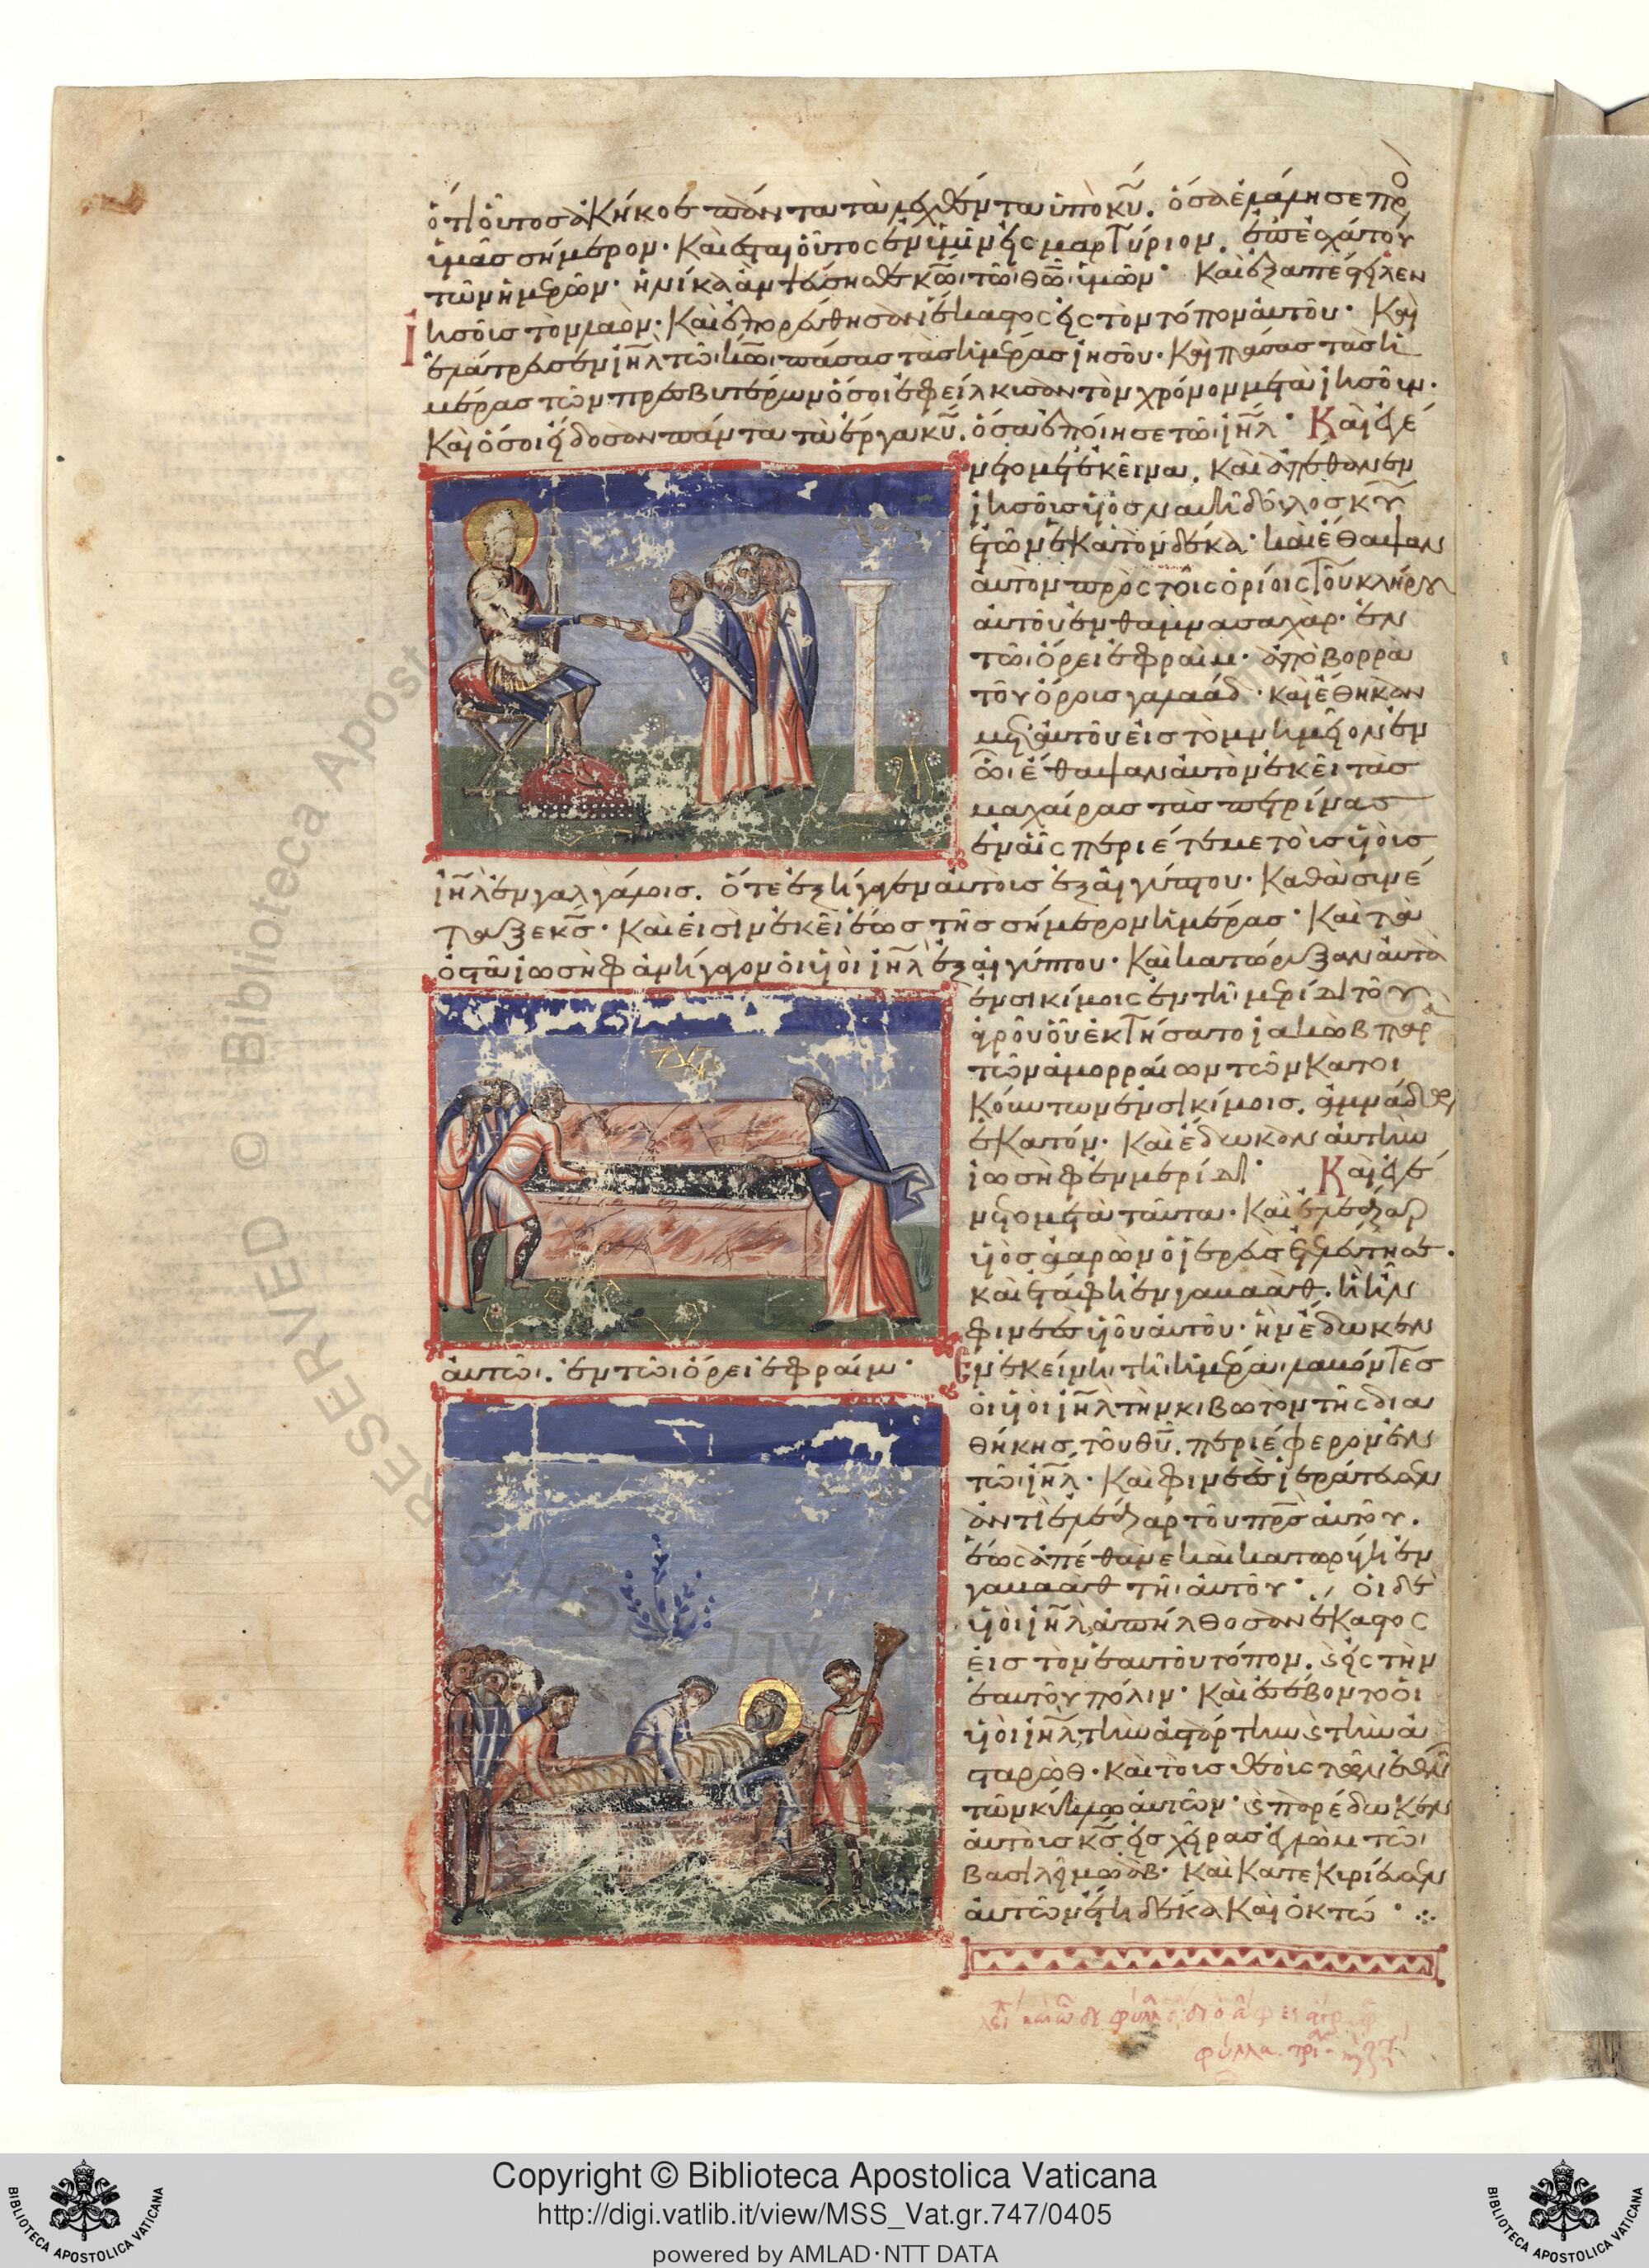 ὅτι οὗτος ἀκήκοε πάντα τὰ λεχθέντα ὑπὸ κ̅υ̅. ὅσα ἐλάλησε πρὸ
ὑμᾶς σήμερον· καὶ ἔσται οὗτος ἐν ὑμῖν εἰς μαρτύριον. ἐπ ἐσχάτου
τῶν ἡμερῶν· ἡνίκα ἂν ψεύσησθε κ̅ω̅ τῶ θ̅ω̅ ὑμῶν· Καὶ ἐξαπέστειλεν
Ἰησοῦς τὸν λαὸν· καὶ ἐπορεύθησαν ἕκαστος εἰς τὸν τόπον αὐτοῦ· καὶ
ἐλάτρευσεν ι̅η̅λ̅ τῶ κ̅ω̅ πάσας τὰς ἡμέρας ἰησοῦ· καὶ πάσας τὰς ἡ
μέρας τῶν πρεσβυτέρων ὅσοι ἐφείλκυσαν τὸν χρόνον μετὰ ἰησοῦν·
καὶ ὅσοι εἴδοσαν πάντα τὰ ἔργα κ̅υ̅. ὅσα ἐποίησε τῶ ι̅η̅λ̅· Καὶ ἐγέ
νετο μετ ἐκεῖνα. καὶ ἀπέθανεν
ἰησοῦς υἱὸς ναυῆ δοῦλος κ̅υ̅
ἐτῶν ἑκατὸν δέκα· καὶ ἔθαψαν
αὐτὸν πρὸς τοῖς ὁρίοις τοῦ κλήρου
αὐτοῦ ἐν θαμνασαχάρ· ἐν
τῶ ὄρει ἐφραὶμ· ἀπὸ βορρᾶ
τοῦ ὄρους γαλαάδ· καὶ ἔθηκαν
μετ αὐτοῦ εἰς τὸ μνημεῖον ἐν
ῶ ἔθαψαν αὐτὸν ἐκεῖ τὰς
μαχαίρας τὰς πετρίνας
ἐν αἷς περιέτεμε τοὺς υἱοὺς
ι̅η̅λ̅ ἐν γαλγάλοις. ὅτε ἐξήγαγεν αὐτοὺς ἐξ αἰγύπτου· καθὰ συνέ
ταξε κ̅ς̅· καὶ εἰσὶν ἐκεῖ ἕως τῆς σήμερον ἡμέρας· Καὶ τὰ
ὀστᾶ ἰωσὴφ ἀνήγαγον οἱ υἱοὶ ι̅η̅λ̅ ἐξ αἰγύπτου· καὶ κατώρυξαν αὐτὰ
ἐν σικίμοις ἐν τῆ μερίδι τοῦ
ἀγροῦ οὗ ἐκτήσατο ἰακὼβ παρὰ
τῶν ἀμορραίων τῶν κατοι
κούντων ἐν σικίμοις. ἀμνάδων
ἑκατόν· καὶ ἔδωκαν αὐτὴν
ἰωσὴφ ἐν μερίδι· Καὶ ἐγέ
νετο μετὰ ταῦτα· καὶ ἐλεάζαρ
υἱὸς ἀαρὼν ὁ ἱερεὺς ἐτελεύτησε.
καὶ ἐτάφη ἐν γαβαὰθ. ἡ ἦν
φινεὲς υἱοῦ αὐτοῦ· ἣν ἔδωκεν
αὐτῶ. ἐν τῶ ὄρει ἐφραίμ·
Ἐν ἐκείνη τῆ ἡμέρα λαβόντες
οἱ υἱοὶ ι̅η̅λ̅ τὴν κιβωτὸν τῆς δια
θήκης τοῦ θ̅υ̅. περιέφερον ἐν
τῶ ι̅η̅λ̅· καὶ φινεὲς ἱεράτευσεν
ἀντὶ ἐλεάζαρ τοῦ π̅ρ̅ς̅ αὐτοῦ.
ἕως ἀπέθανε καὶ κατωρύγη ἐν
γαβαὰθ τῆ αὐτοῦ· οἱ δὲ
υἱοὶ ι̅η̅λ̅ ἀπήλθοσαν ἕκαστος
εἰς τὸν ἑαυτοῦ τόπον. ϗ εἰς τὴν
ἑαυτοῦ πόλιν· καὶ ἐσέβοντο οἱ
υἱοὶ ι̅η̅λ̅ τὴν ἀστάρτην ϗ τὴν ἀ
σταρὼθ· καὶ τοὺς θεοὺς τῶν ἐθνῶν
τῶν κύκλω αὐτῶν· ϗ παρέδωκεν
αὐτοὺς κ̅ς̅ εἰς χεῖρας ἐγλὼμ τῶ
βασιλεῖ μωάβ· καὶ κατεκυρίευσεν
αὐτῶν ἔτη δέκα καὶ ὀκτώ·
φύλλα
RESERVED © Biblioteca Apostolica Vaticana
ALL RIGHTS
Copyright © Biblioteca Apostolica Vaticana
http://digi.vatlib.it/view/MSS_Vat.gr.747/0405
powered by AMLAD·NTT DATA
BIBLIOTECA APOSTOLICA VATICANA
BIBLIOTECA APOSTOLICA VATICANA